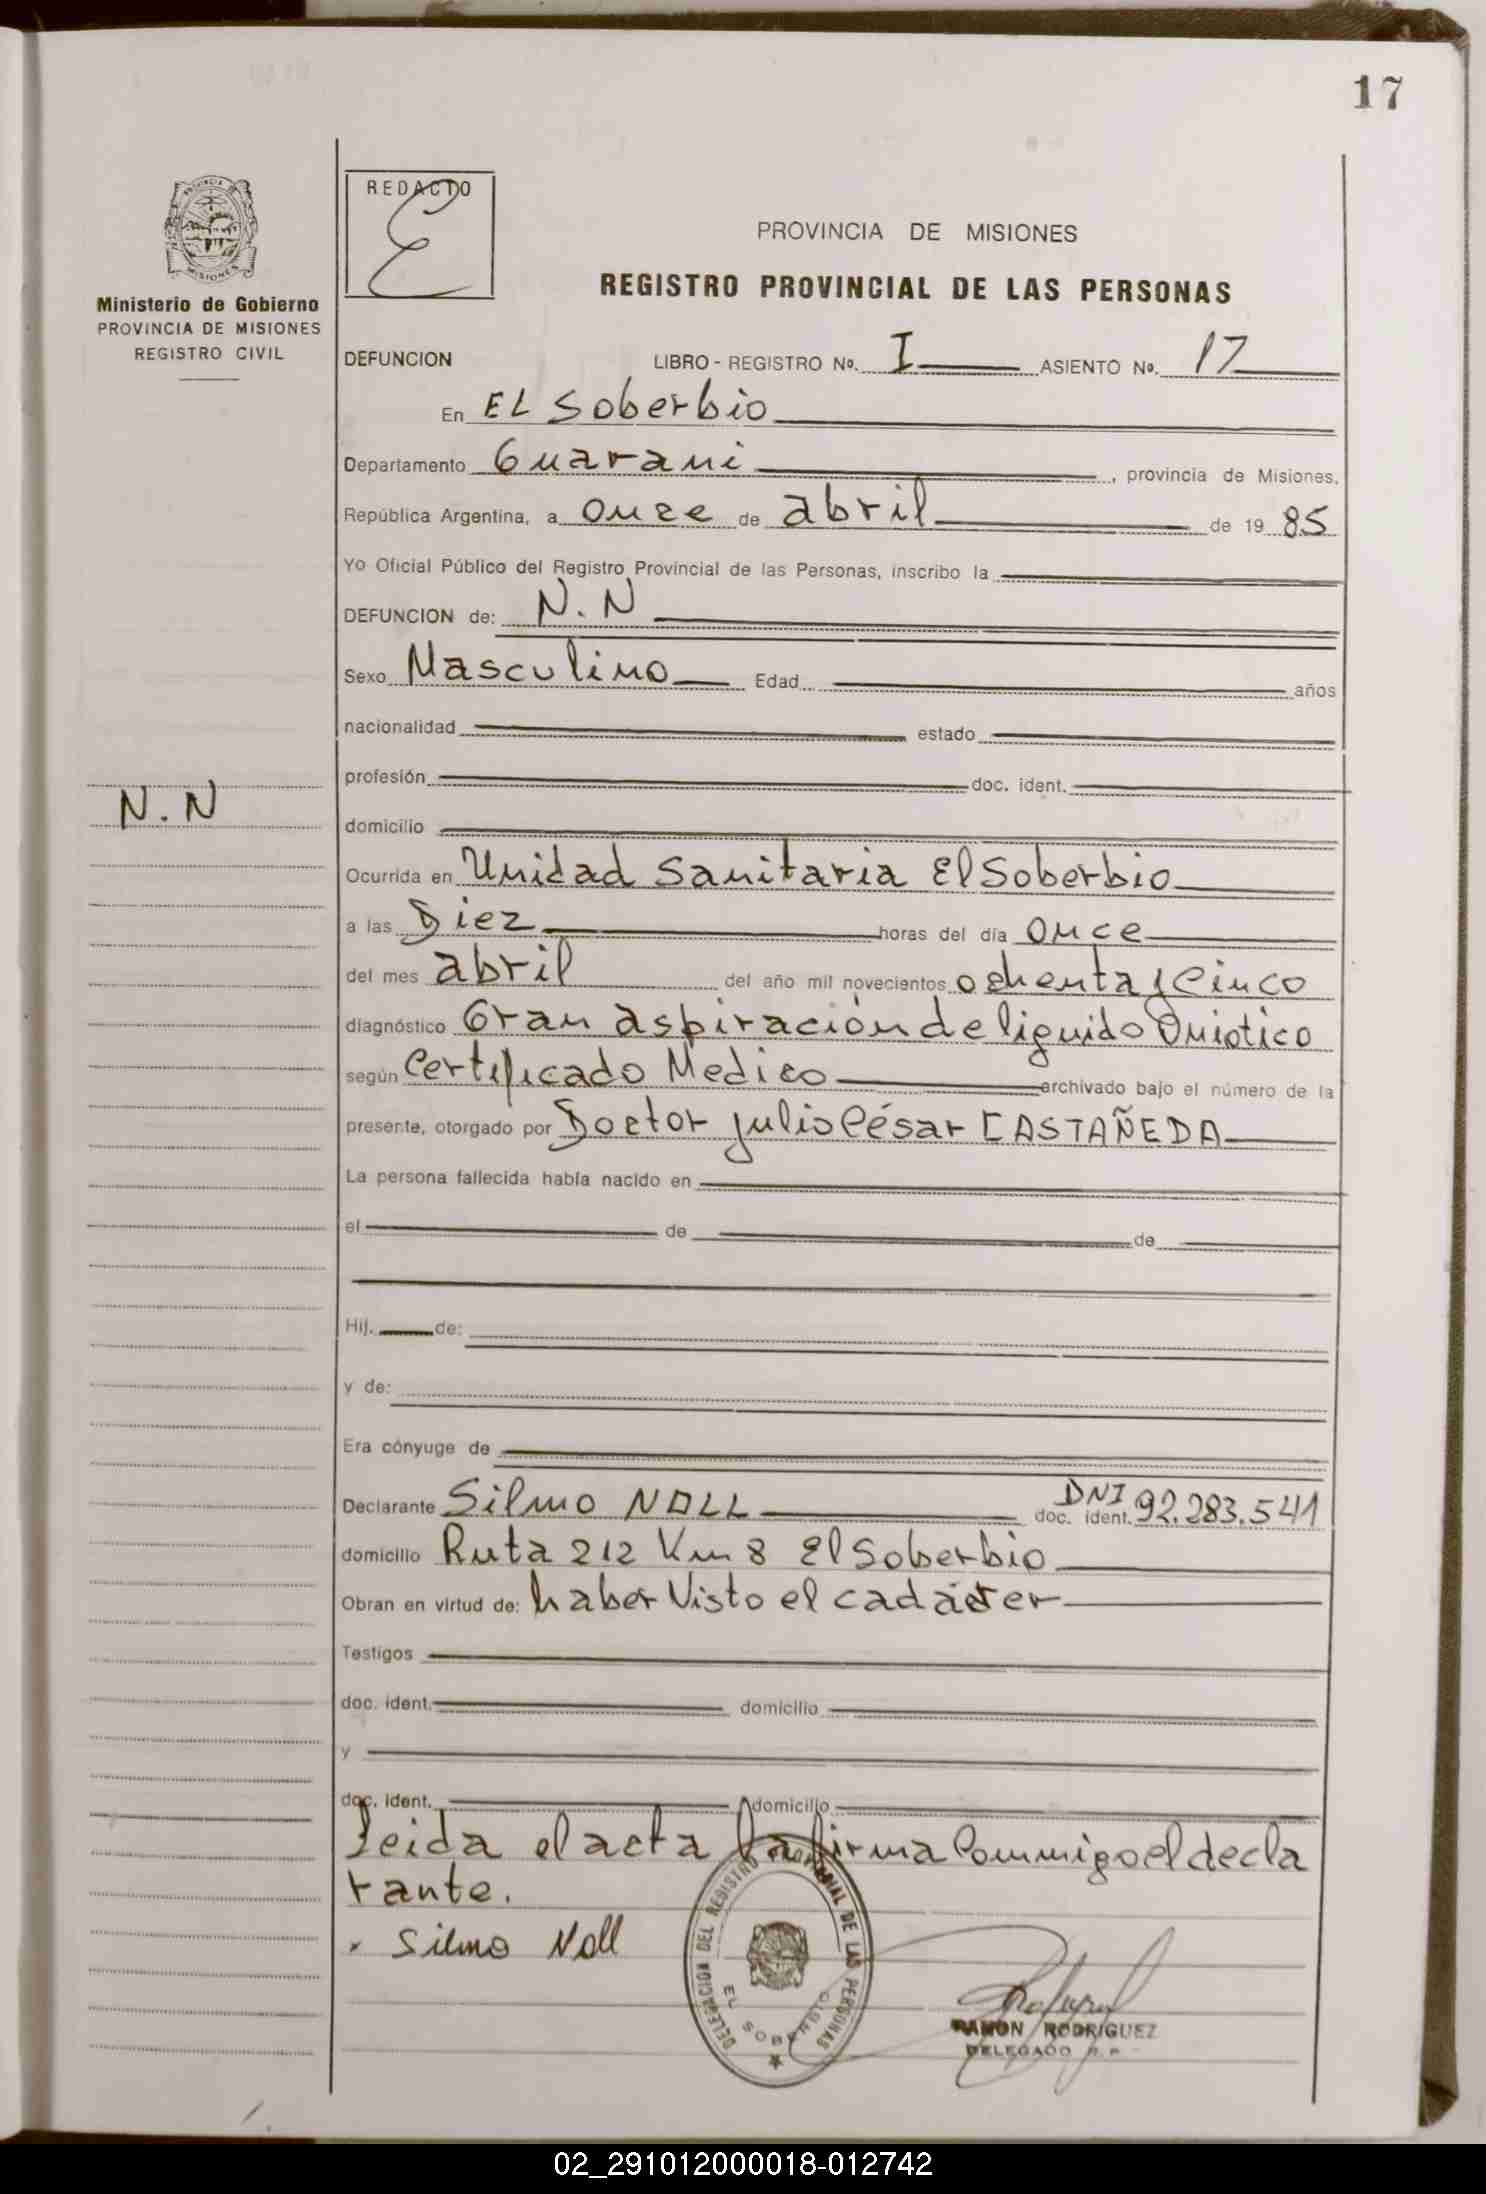 17
REDACTO
PROVINCIA DE MISIONES
REGISTRO PROVINCIAL DE LAS PERSONAS
Ministerio de Gobierno
PROVINCIA DE MISIONES
REGISTRO CIVIL
DEFUNCION LIBRO - REGISTRO Nº. I ASIENTO Nº. 17
En EL Soberbio
Departamento Guarani, provincia de Misiones.
República Argentina, a once de abril de 19 85
Yo Oficial Público del Registro Provincial de las Personas, inscribo la
DEFUNCION de: N.N
Sexo Masculino Edad años
nacionalidad estado
profesión doc. ident.
N.N
domicilio
Ocurrida en Unidad Sanitaria El Soberbio
a las Diez horas del día once
del mes abril del año mil novecientos ochenta y Cinco
diagnóstico Gran aspiración de liquido Oniotico
según Certificado Medico archivado bajo el número de la
presente, otorgado por Doctor Julio César CASTAÑEDA
La persona fallecida había nacido en
el de de
Hij. de:
y de:
Era cónyuge de
Declarante Silmo NOLL doc. ident. DNI 92.283.541
domicilio Ruta 212 Km 8 El Soberbio
Obran en virtud de: haber Visto el cadáver
Testigos
doc. ident. domicilio
y
doc. ident. domicilio
Leida el acta la firma Conmigo el decla
rante.
Silmo Noll
DELEGACION DEL REGISTRO PROVINCIAL DE LAS PERSONAS
EL SOBERBIO
RAMON RODRIGUEZ
DELEGADO R.P.
02_291012000018-012742